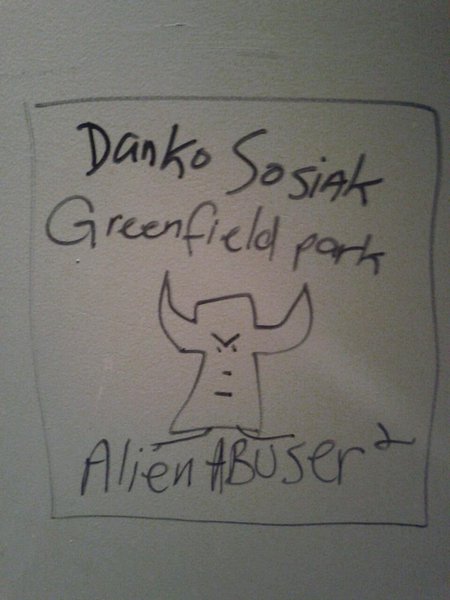 Danko Sosiak
Greenfield park
Alien ABUser 2